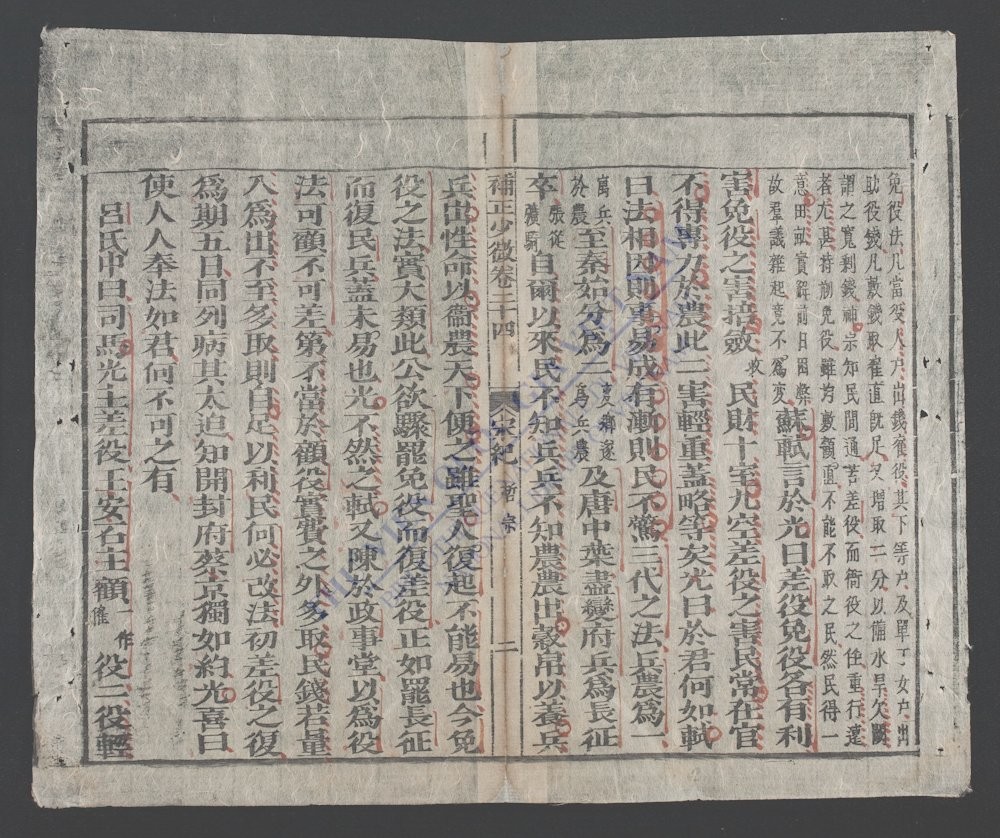 免役法凡當役人戸出錢雇役其下等戸及單丁女戸出
助役錢凡敷錢取雇直旣足又增取二分以備水旱欠闕
謂之寬剩錢神宗知民間通苦差役而衙役之任重行遠
者尤甚特創免役雖均敷顧直不能不取之民然民得一
意田畝實解前日困弊
故羣議雜起意不爲變 蘇軾言於光曰差役免役各有利
害免役之害掊斂民財十室九空差役之害民常在官
不得專力於農此二害輕重蓋略等矣光曰於君何如軾
曰法相因則事易成有漸則民不驚三代之法兵農爲一
寓兵於農 至秦始分爲二 變鄉遂爲兵農 及唐中葉盡變府兵爲長征
卒 張從獷騎 自爾以來民不知兵兵不知農農出穀帛以養兵
補正少微卷二十四 宋紀 哲宗 二
兵出性命以衞農天下便之雖聖人復起不能易也今免
役之法實大類此公欲驟罷免役而復差役正如罷長征
而復民兵蓋未易也光不然之軾又陳於政事堂以爲役
法可顧不可差第不當於顧役實費之外多取民錢若量
入爲出不至多取則自足以利民何必改法初差役之復
爲期五日同列病其太迫知開封府蔡京獨如約光喜曰
使人人奉法如君何不可之有
呂氏中曰司馬光主差役王安石主顧 一作僱 役二役輕